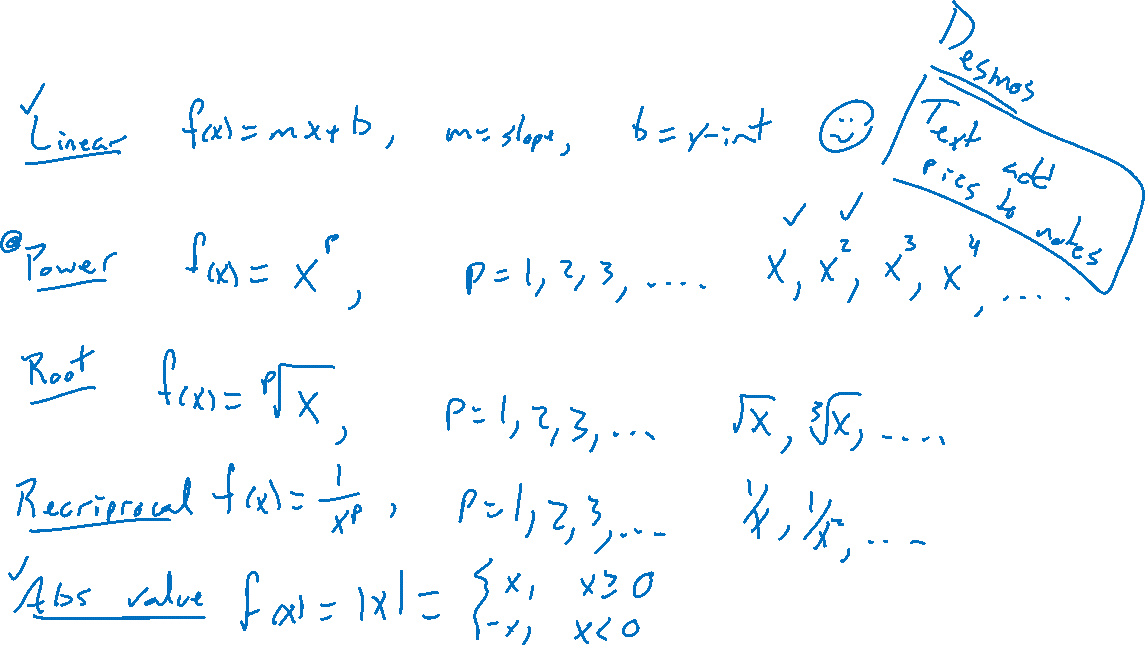 Desmos
Text add
pics to notes
✓ Linear f(x) = mx + b, m = slope, b = y-int ☺
@ Power f(x) = x^p, p = 1, 2, 3, .... ✓x, ✓x², x³, x⁴, ....
Root f(x) = ᵖ√x, p = 1, 2, 3, ... √x, ³√x, ....
Recriprocal f(x) = 1/x^p, p = 1, 2, 3, ... 1/x, 1/x², ...
✓ Abs value f(x) = |x| = { x, x ≥ 0
-x, x < 0